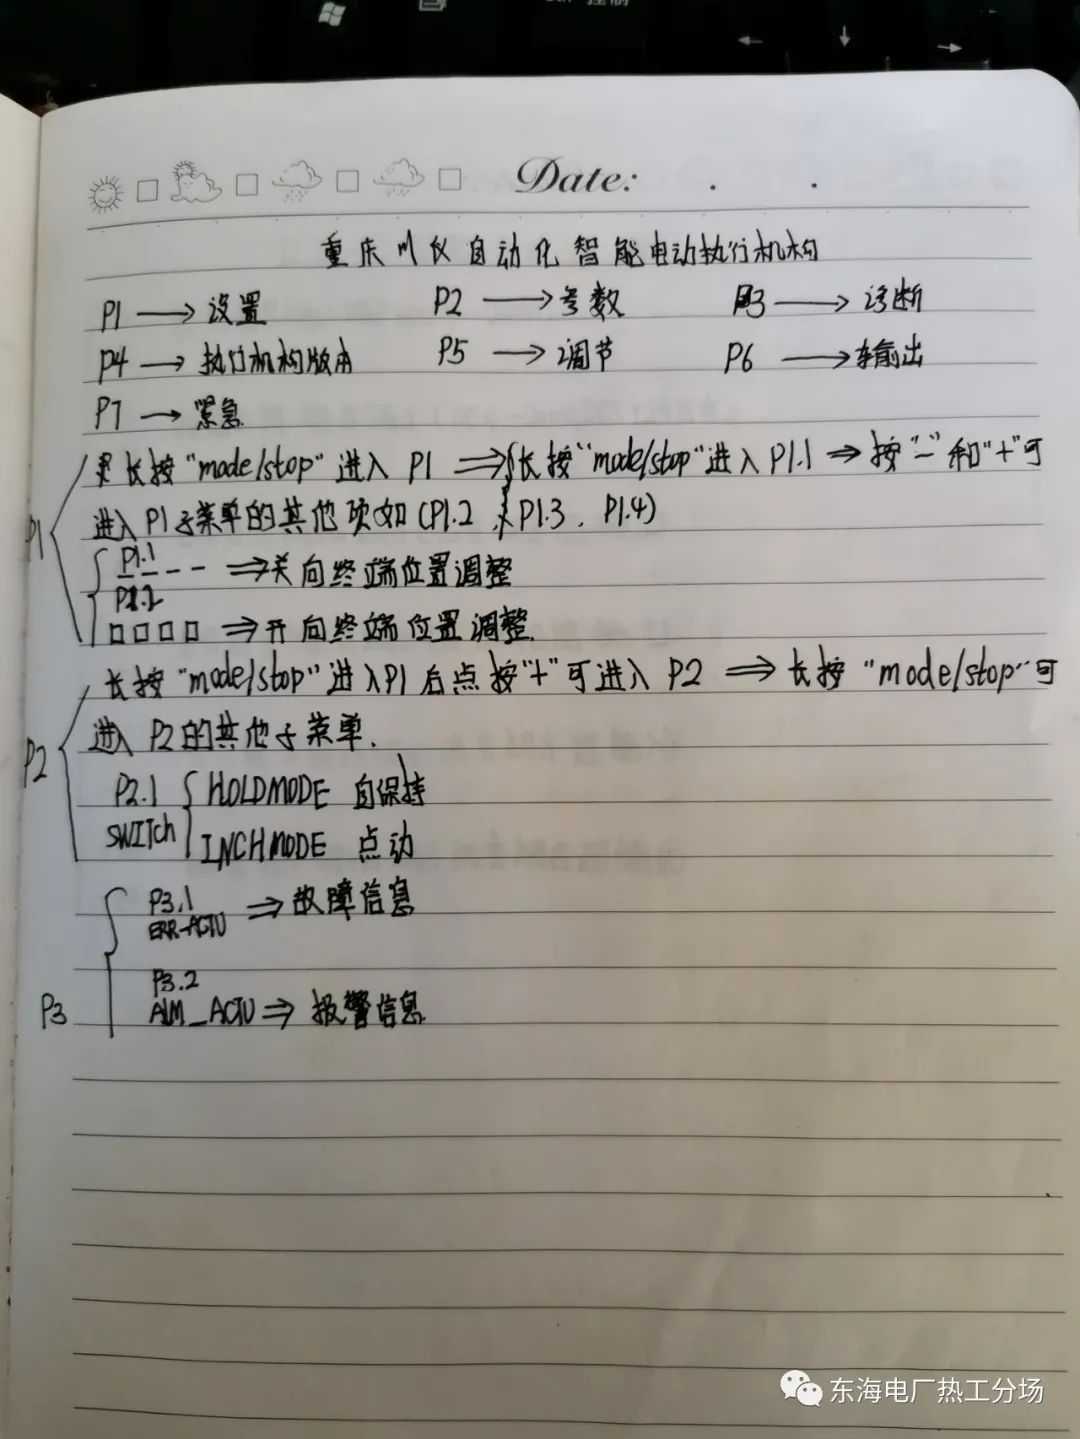 Date: . .
重庆川仪自动化智能电动执行机构
P1 → 设置 P2 → 参数 P3 → 诊断
P4 → 执行机构版本 P5 → 调节 P6 → 输出
P7 → 紧急
长按"mode/stop"进入 P1 ⇒ 长按"mode/stop"进入P1.1 ⇒ 按"-"和"+"可
P1 进入P1子菜单的其他项如(P1.2, P1.3, P1.4)
P1.1
---- ⇒ 关向终端位置调整
P1.2
□□□□ ⇒ 开向终端位置调整.
长按"mode/stop"进入P1后点按"+"可进入 P2 ⇒ 长按"mode/stop"可
P2 进入P2的其他子菜单.
P2.1 HOLDMODE 自保持
SWITCh INCHMODE 点动
P3.1 ⇒ 故障信息
ERR-ACTU
P3.2
P3 AlM_ACTU ⇒ 报警信息
东海电厂热工分场